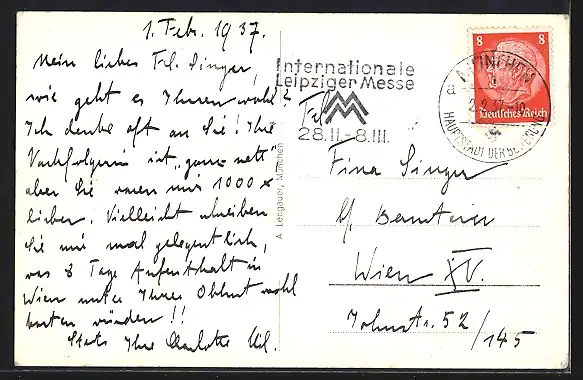 1. Febr. 1937.
Mein liebes Frl. Singer,
wie geht es Ihnen wohl?
Ich denke oft an Sie! Ihre
Nachfolgerin ist "ganz nett"
aber Sie waren mir 1000 x
lieber. Vielleicht schreiben
Sie mir mal gelegentlich,
was 8 Tage Aufenthalt in
Wien unter Ihrer Obhut wohl
kosten würden!!
Stets Ihre Charlotte
A. Lengauer, München
Internationale
Leipziger Messe
MM
28.II.-8.III.
8 8
Deutsches Reich
MÜNCHEN
HAUPTSTADT DER BEWEGUNG
Frl.
Fina Singer
b/
Wien XV.
Johnstr. 52
/145